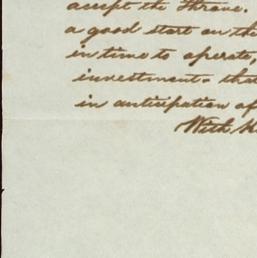 accept the Throne.
a good start on the
in time to operate,
investments that
in anticipation of
With